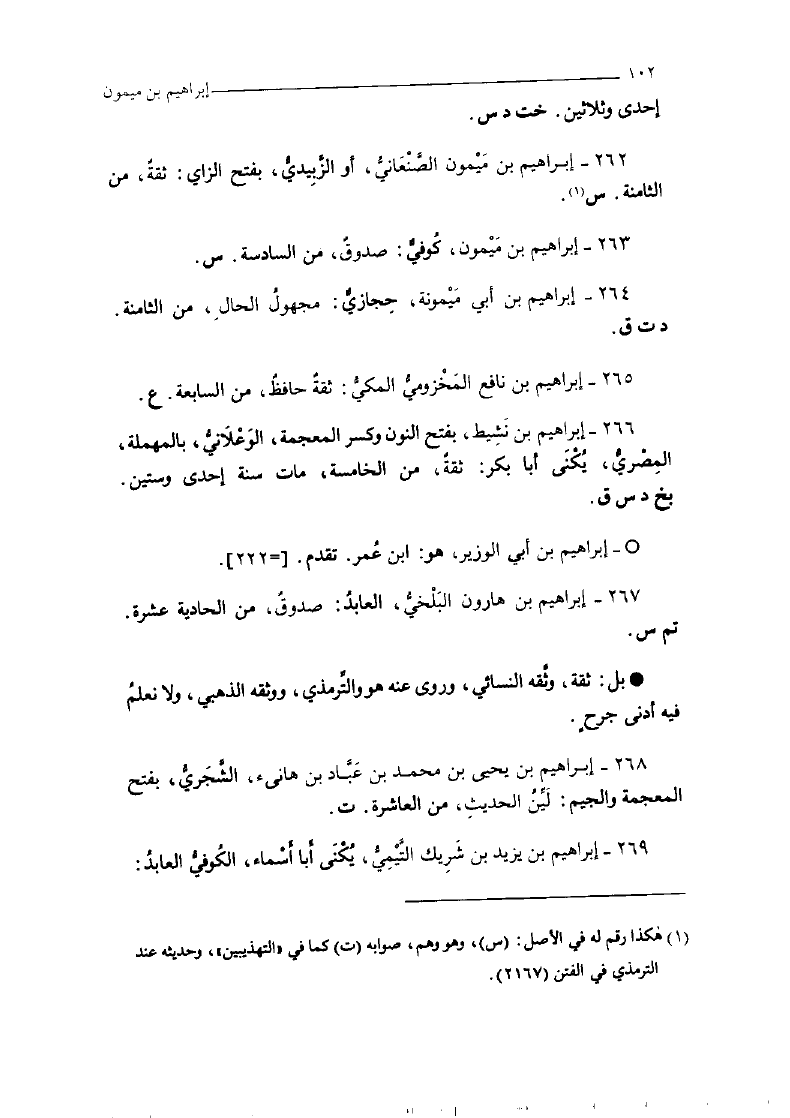 ١٠٢ إبراهيم بن ميمون
إحدى وثلاثين. خت د س.
٢٦٢ ـ إبـراهيم بن مَيْمون الصَّنْعَانيُّ، أو الزَّبِيديُّ، بفتح الزاي: ثقةٌ، من
الثامنة. س(١).
٢٦٣ ـ إبراهيم بن مَيْمون، كُوفيٌّ: صدوقٌ، من السادسة. س.
٢٦٤ ـ إبراهيم بن أبي مَيْمونة، حِجازيٌّ: مجهولُ الحالِ، من الثامنة.
د ت ق.
٢٦٥ ـ إبراهيم بن نافع المَخْزوميُّ المكيُّ: ثقةٌ حافظٌ، من السابعة. ع.
٢٦٦ ـ إبراهيم بن نَشِيط، بفتح النون وكسر المعجمة، الوَعْلَانيُّ، بالمهملة،
المِصْريُّ، يُكْنَى أبا بكر: ثقةٌ، من الخامسة، مات سنة إحدى وستين.
بخ د س ق.
○ ـ إبراهيم بن أبي الوزير، هو: ابن عُمر. تقدم. [=٢٢٢].
٢٦٧ ـ إبراهيم بن هارون البَلْخيُّ، العابدُ: صدوقٌ، من الحادية عشرة.
تم س.
● بل: ثقة، وثَّقه النسائي، وروى عنه هو والتِّرمذي، ووثقه الذهبي، ولا نعلمُ
فيه أدنى جرحٍ.
٢٦٨ ـ إبـراهيم بن يحيى بن محمـد بن عَبَّـاد بن هانىء، الشَّجَريُّ، بفتح
المعجمة والجيم: لَيِّنُ الحديثِ، من العاشرة. ت.
٢٦٩ ـ إبراهيم بن يزيد بن شَرِيك التَّيْمِيُّ، يُكْنَى أبا أَسْماء، الكُوفيُّ العابدُ:
(١) هكذا رقم له في الأصل: (س)، وهو وهم، صوابه (ت) كما في «التهذيبين»، وحديثه عند
الترمذي في الفتن (٢١٦٧).